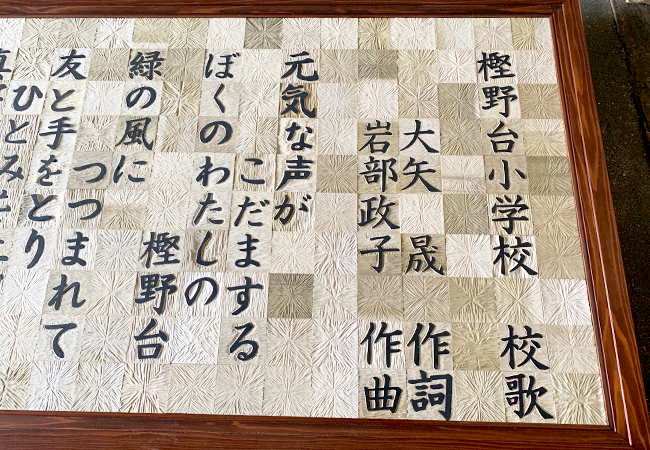 樫野台小学校 校歌
大矢 晟 作詞
岩部政子 作曲
元気な声が
こだまする
ぼくのわたしの
樫野台
緑の風に
つつまれて
友と手をとり
ひとみ